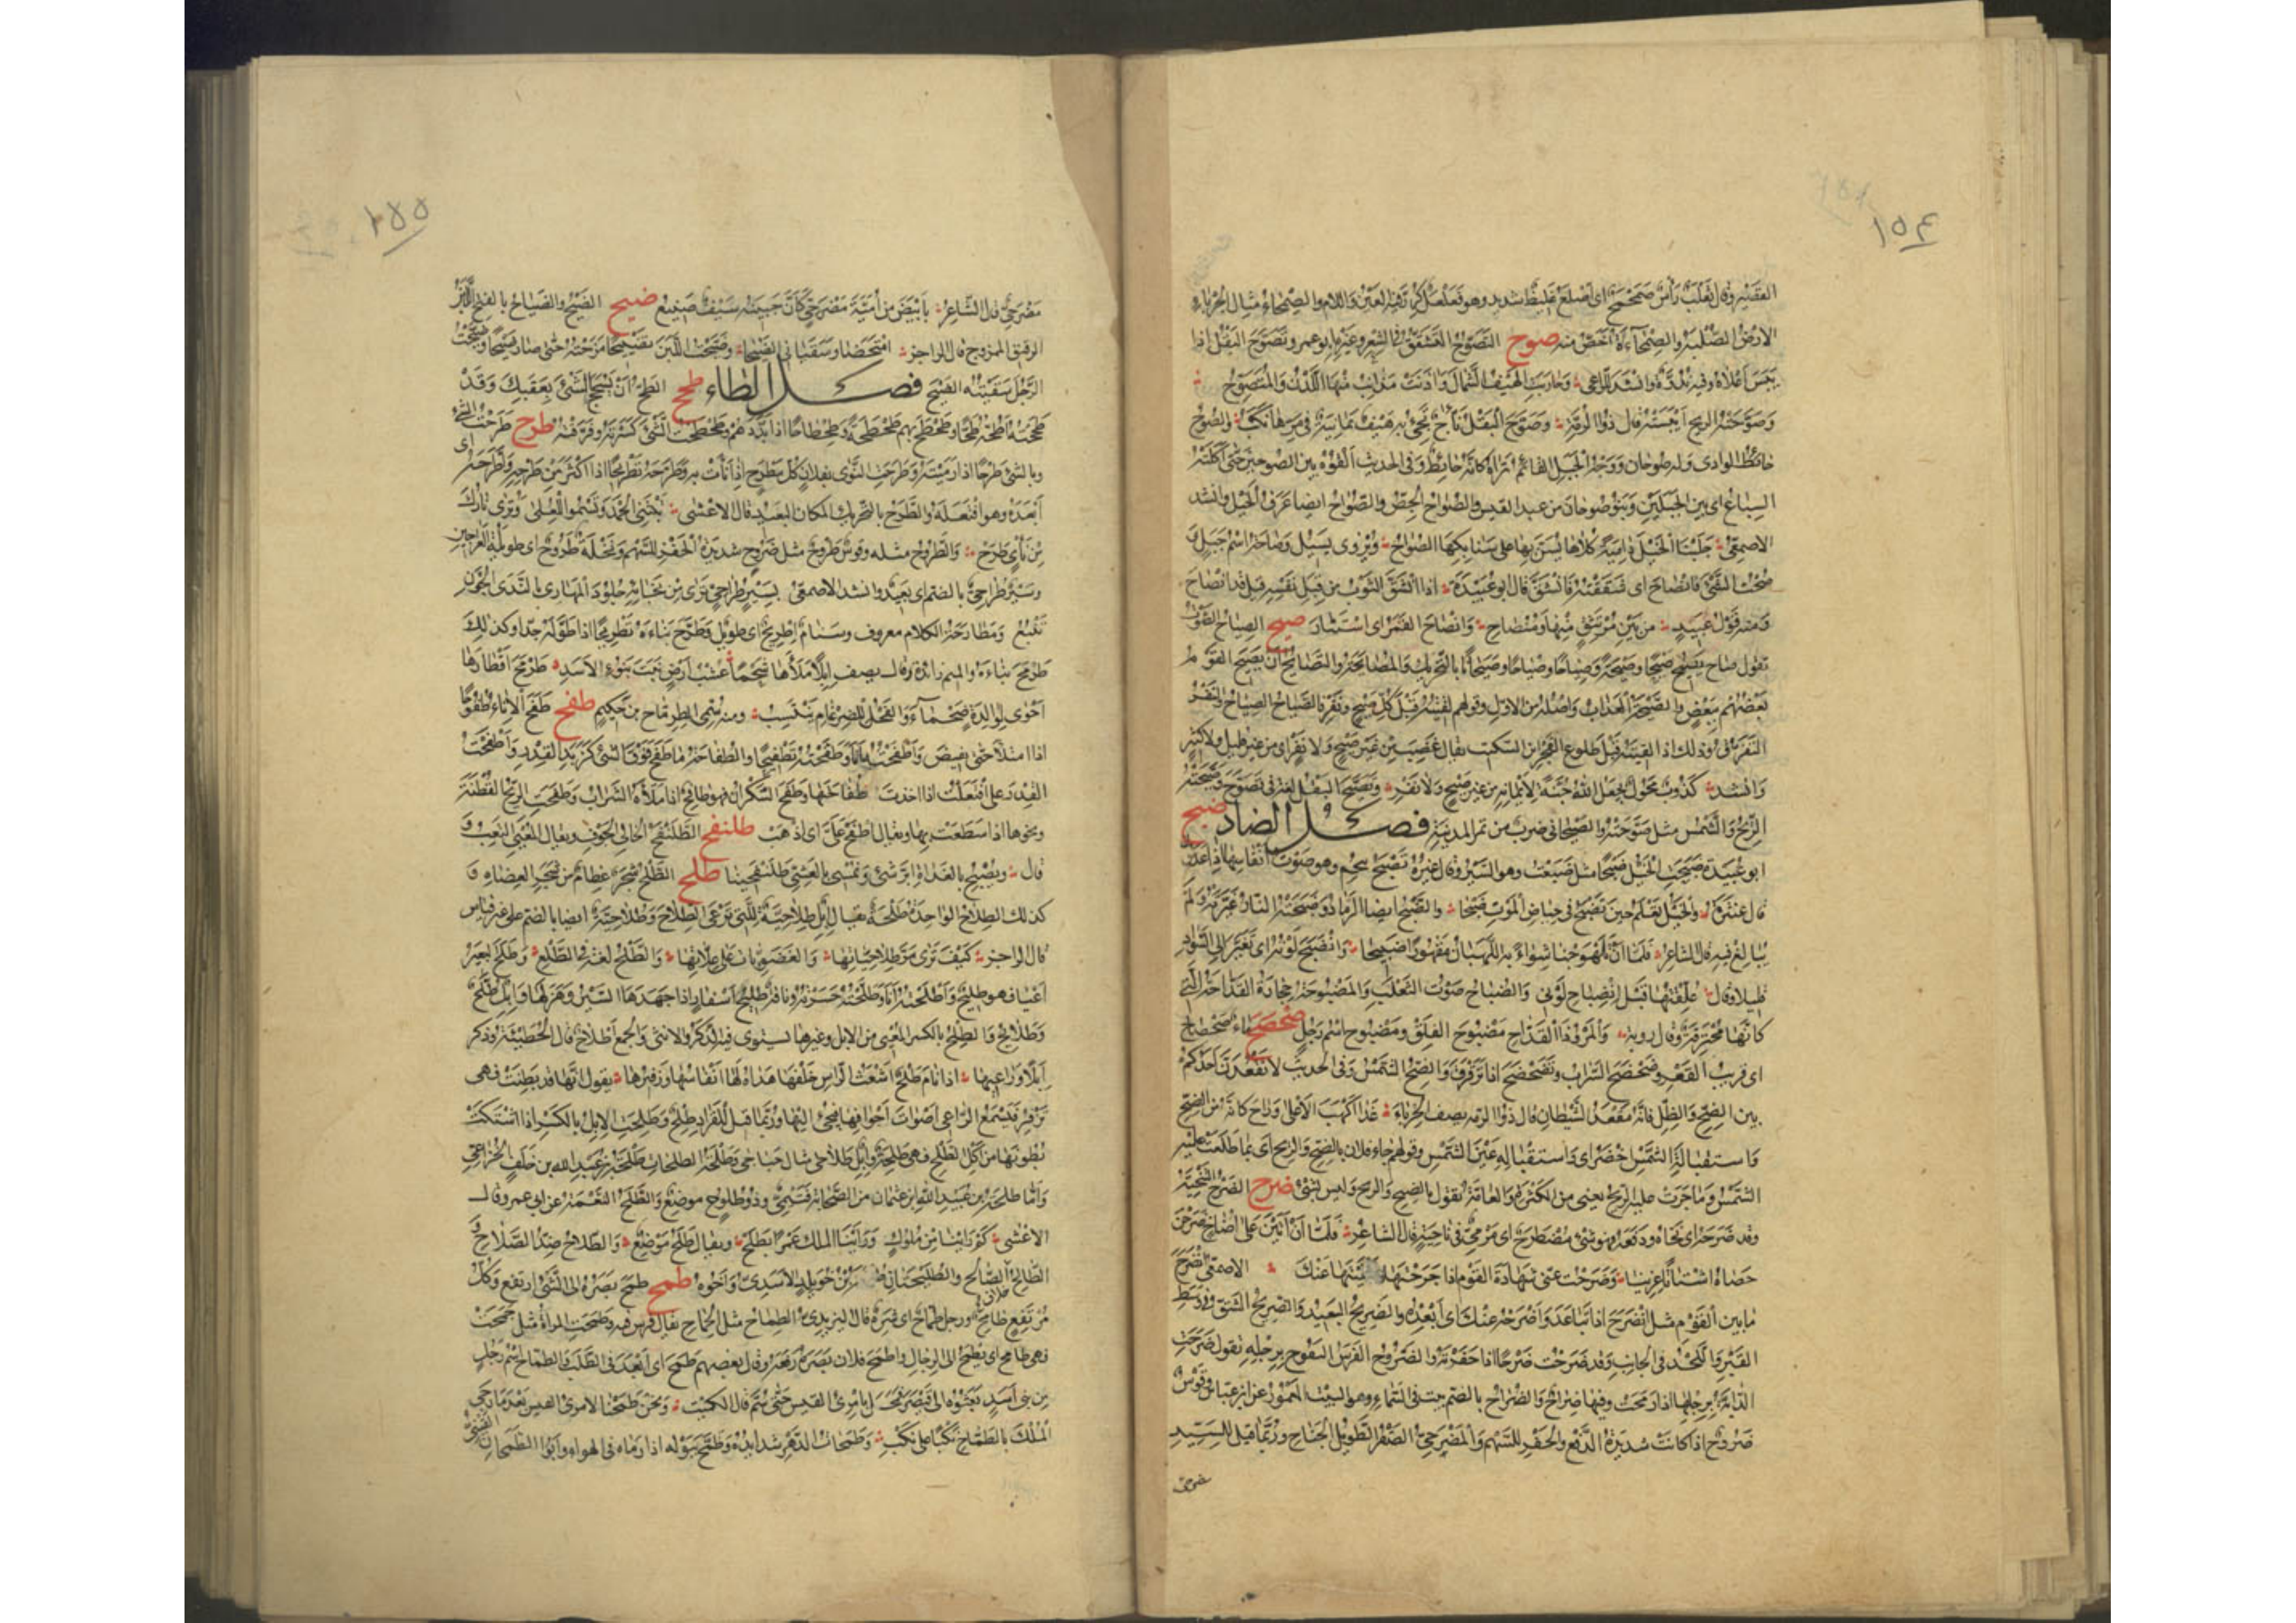 ١٥٤
القصير وقال ثعلب رأس صمحمح أي أصلع غليظ شديد وهو فعلعل كرر فيه العين واللام والصمحاء مثال الحرباء
الأرض الصلبة والصمحاءة أخص منه صوح التصوح التشقق في الشعر وغيره أبو عمرو تصوح البقل إذا
يبس أعلاه وفيه ندوة وأنشد للراعي وحاربت الهيف الشمال وآذنت مذانب منها اللدن والمتصوح
وصوحته الريح أيبسته قال ذو الرمة وصوح البقل نأاج تجيء به هيف يمانية في مرها نكب والصوح
حائط الوادي وله صوحان ووجه الجبل القائم تراه كأنه حائط وفي الحديث ألقوه بين الصوحين حتى أكلته
السباع أي بين الجبلين وبنو صوحان من عبد القيس والصواح الجص والصواح أيضا عرق الخيل وأنشد
الأصمعي جلبنا الخيل دامية كلاها يسن بها على سنابكها الصواح ويروى يسيل وصاحة اسم جبل
صحت الشيء فانصاح أي شققته فانشق قال أبو عبيدة إذا انشق الثوب من قبل نفسه قيل قد انصاح
ومنه قول عبيد من بين مرتتق منها ومنصاح وانصاح القمر أي استنار صيح الصياح الصوت
تقول صاح يصيح صيحا وصيحة وصياحا وصياحا وصيحانا بالتحريك والمصايحة والتصايح أن يصيح القوم
بعضهم ببعض والصيحة العذاب وأصله من الأول وقولهم لقيته قبل كل صيح ونفر فالصياح الصياح والنفر
التفرق وذلك إذا لقيته قبل طلوع الفجر ابن السكيت يقال غضب من غير صيح ولا نفر أي من غير قليل ولا كثير
وأنشد كذوب محول يجعل الله جنة لأيمانه من غير صيح ولا نفر وتصيح البقل لغة في تصوح وصيحته
الريح والشمس مثل صوحته والصيحاني ضرب من تمر المدينة فصل الضاد ضبح
أبو عبيدة ضبحت الخيل ضبحا مثل ضبعت وهو السير وقال غيره تضبح تنحم وهو صوت أنفاسها إذا عدون
قال عنترة والخيل تعلم حين تضبح في حياض الموت ضبحا والضبح أيضا الرماد وضبحته النار غيرته ولم
تبالغ فيه قال الشاعر فلما أن تلهوجنا شواء به اللهبان مقهورا ضبيحا وانضبح لونه أي تغير إلى السواد
قليلا وقال علقتها قبل انضباح لوني والضباح صوت الثعلب والمضبوحة حجارة القداحة التي
كأنها محترقة وقال رؤبة والمرو ذا القداح مضبوح الفلق ومضبوح اسم رجل ضحضح ماء ضحضاح
أي قريب القعر وضحضح السراب وتضحضح إذا ترقرق والضح الشمس وفي الحديث لا يقعدن أحدكم
بين الضح والظل فإنه مقعد الشيطان قال ذو الرمة يصف الحرباء غدا أكهب الأعلى وراح كأنه من الضح
واستقباله الشمس أخضر أي واستقباله عين الشمس وقولهم جاء فلان بالضح والريح أي بما طلعت عليه
الشمس وما جرت عليه الريح يعني من الكثرة والعامة تقول بالضيح والريح وليس بشيء ضرح الضرح التنحية
وقد ضرحه أي نحاه ودفعه فهو شيء مضطرح أي مرمي في ناحية قال الشاعر فلما أن أتين على أضاخ ضرحن
حصاه أشتاتا عزينا وضرحت عني شهادة القوم إذا جرحتها وألقيتها عنك الأصمعي انضرح
ما بين القوم مثل انضرج إذا تباعد وأضرحه عنك أي أبعده والضريح البعيد والضريح الشق في وسط
القبر واللحد في الجانب وقد ضرحت ضرحا إذا حفرته والضروح الفرس النفوح برجله تقول ضرحت
الدابة برجلها إذا رمحت وفيها ضراح والضراح بالضم بيت في السماء وهو البيت المعمور عن ابن عباس وقوس
ضروح إذا كانت شديدة الدفع والحفز للسهم والمضرحي الصقر الطويل الجناح وربما قيل للسيد
مضرحي
١٥٥
مضرحي قال الشاعر بأبيض من أمية مضرحي كأن جبينه سيف صنيع ضيح الضيح والضياح بالفتح اللبن
الرقيق الممزوج قال الراجز امتحضا وسقياني الضيحا وضيحت اللبن تضييحا مزجته حتى صار ضيحا وضيحت
الرجل سقيته الضيح فصل الطاء طحح الطح أن تسحج الشيء بعقبك وقد
طححته أطحه طحا وطحطح بهم طحطحة وطحطاحا إذا بددهم وطحطحت الشيء كسرته وفرقته طرح طرحت الشيء
وبالشيء طرحا إذا رميته وطرحت النوى بفلان كل مطرح إذا نأت به وطرحه تطريحا إذا أكثر من طرحه واطرحه أي
أبعده وهو افتعله والطرح بالتحريك المكان البعيد قال الأعشى تبتني الحمد وتسمو للعلى وترى نارك
من ناء طرح والطروح مثله وقوس طروح مثل ضروح شديدة الحفز للسهم ونخلة طروح أي طويلة العراجين
وسير طراحي بالضم أي بعيد وأنشد الأصمعي بسير طراحي ترى من نجائه جلود المهارى بالندى الجون
تنبع ومطارحة الكلام معروف وسنام إطريح أي طويل وطرح بناءه تطريحا إذا طوله جدا وكذلك
طرمح بناءه والميم زائدة وقال يصف إبلا ملأها شحما عشب أرض نبت بنوء الأسد طرمح أقطارها
أحوى لوالدة صحماء والفحل للضرغام ينتسب ومنه سمي الطرماح بن حكيم طفح طفح الإناء طفوحا
إذا امتلأ حتى يفيض وأطفحته أنا وطفحته تطفيحا والطفاحة ما طفح فوق الشيء كزبد القدر واطفحت
القدر على افتعلت إذا أخذت طفاحتها وطفح السكران فهو طافح إذا ملأه الشراب وطفحت الريح القطنة
ونحوها إذا سطعت بها ويقال اطفح عني أي اذهب طلنفح الطلنفح الخالي الجوف ويقال المعيي التعب
قال ونصبح بالغداة أتر شيء ونمسي بالعشي طلنفحينا طلح الطلح شجر عظام من شجر العضاه
كذلك الطلاح الواحدة طلحة يقال إبل طلاحية للتي ترعى الطلاح وطلاحية أيضا بالضم على غير قياس
قال الراجز كيف ترى مر طلاحياتها والغضويات على علاتها والطلح لغة في الطلع وطلح البعير
أعيا فهو طليح وأطلحته أنا وطلحته حسرته وناقة طليح أسفار إذا جهدها السير وهزلها وإبل طلح
وطلائح والطلح بالكسر المعيي من الإبل وغيرها يستوي فيه الذكر والأنثى والجمع أطلاح قال الحطيئة وذكر
إبلا وراعيها إذا نام طلح أشعث الرأس خلفها هداه لها أنفاسها وزفيرها يقول إنها قد بطنت فهي
تزفر فيسمع الراعي أصوات أجوافها فيجيء إليها وربما قيل للقراد طلح وطلحت الإبل بالكسر إذا اشتكت
بطونها من أكل الطلح فهي طلحة وإبل طلاحى مثال حباجى وطلحة الطلحات طلحة بن عبيد الله بن خلف الخزاعي
وأما طلحة بن عبيد الله بن عثمان من الصحابة فتيمي وذو طلوح موضع والطلح النعمة عن أبي عمرو وقال
الأعشى كم رأينا من ملوك ورأينا الملك عمرا بطلح ويقال طلح موضع والطلاح ضد الصلاح
الطالح الصالح والطليحتان بن خويلد الأسدي وأخوه طمح طمح بصره إلى الشيء ارتفع وكل
مرتفع طامح ورجل طماح أي شره قال اليزيدي الطماح مثل الجماح يقال فرس فيه وطمحت المرأة مثل جمحت
فهي طامح أي تطمح إلى الرجال وأطمح فلان بصره رفعه وقال بعضهم طمح أي أبعد في الطلب والطماح اسم رجل
من بني أسد بعثوه إلى قيصر فمحل بامرئ القيس حتى سم قال الكميت ونحن طمحنا لامرئ القيس بعد ما رجى
الملك بالطماح نكبا على نكب وطمحات الدهر شدائده وطمح ببوله إذا رماه في الهواء وأبو الطمحان القيني